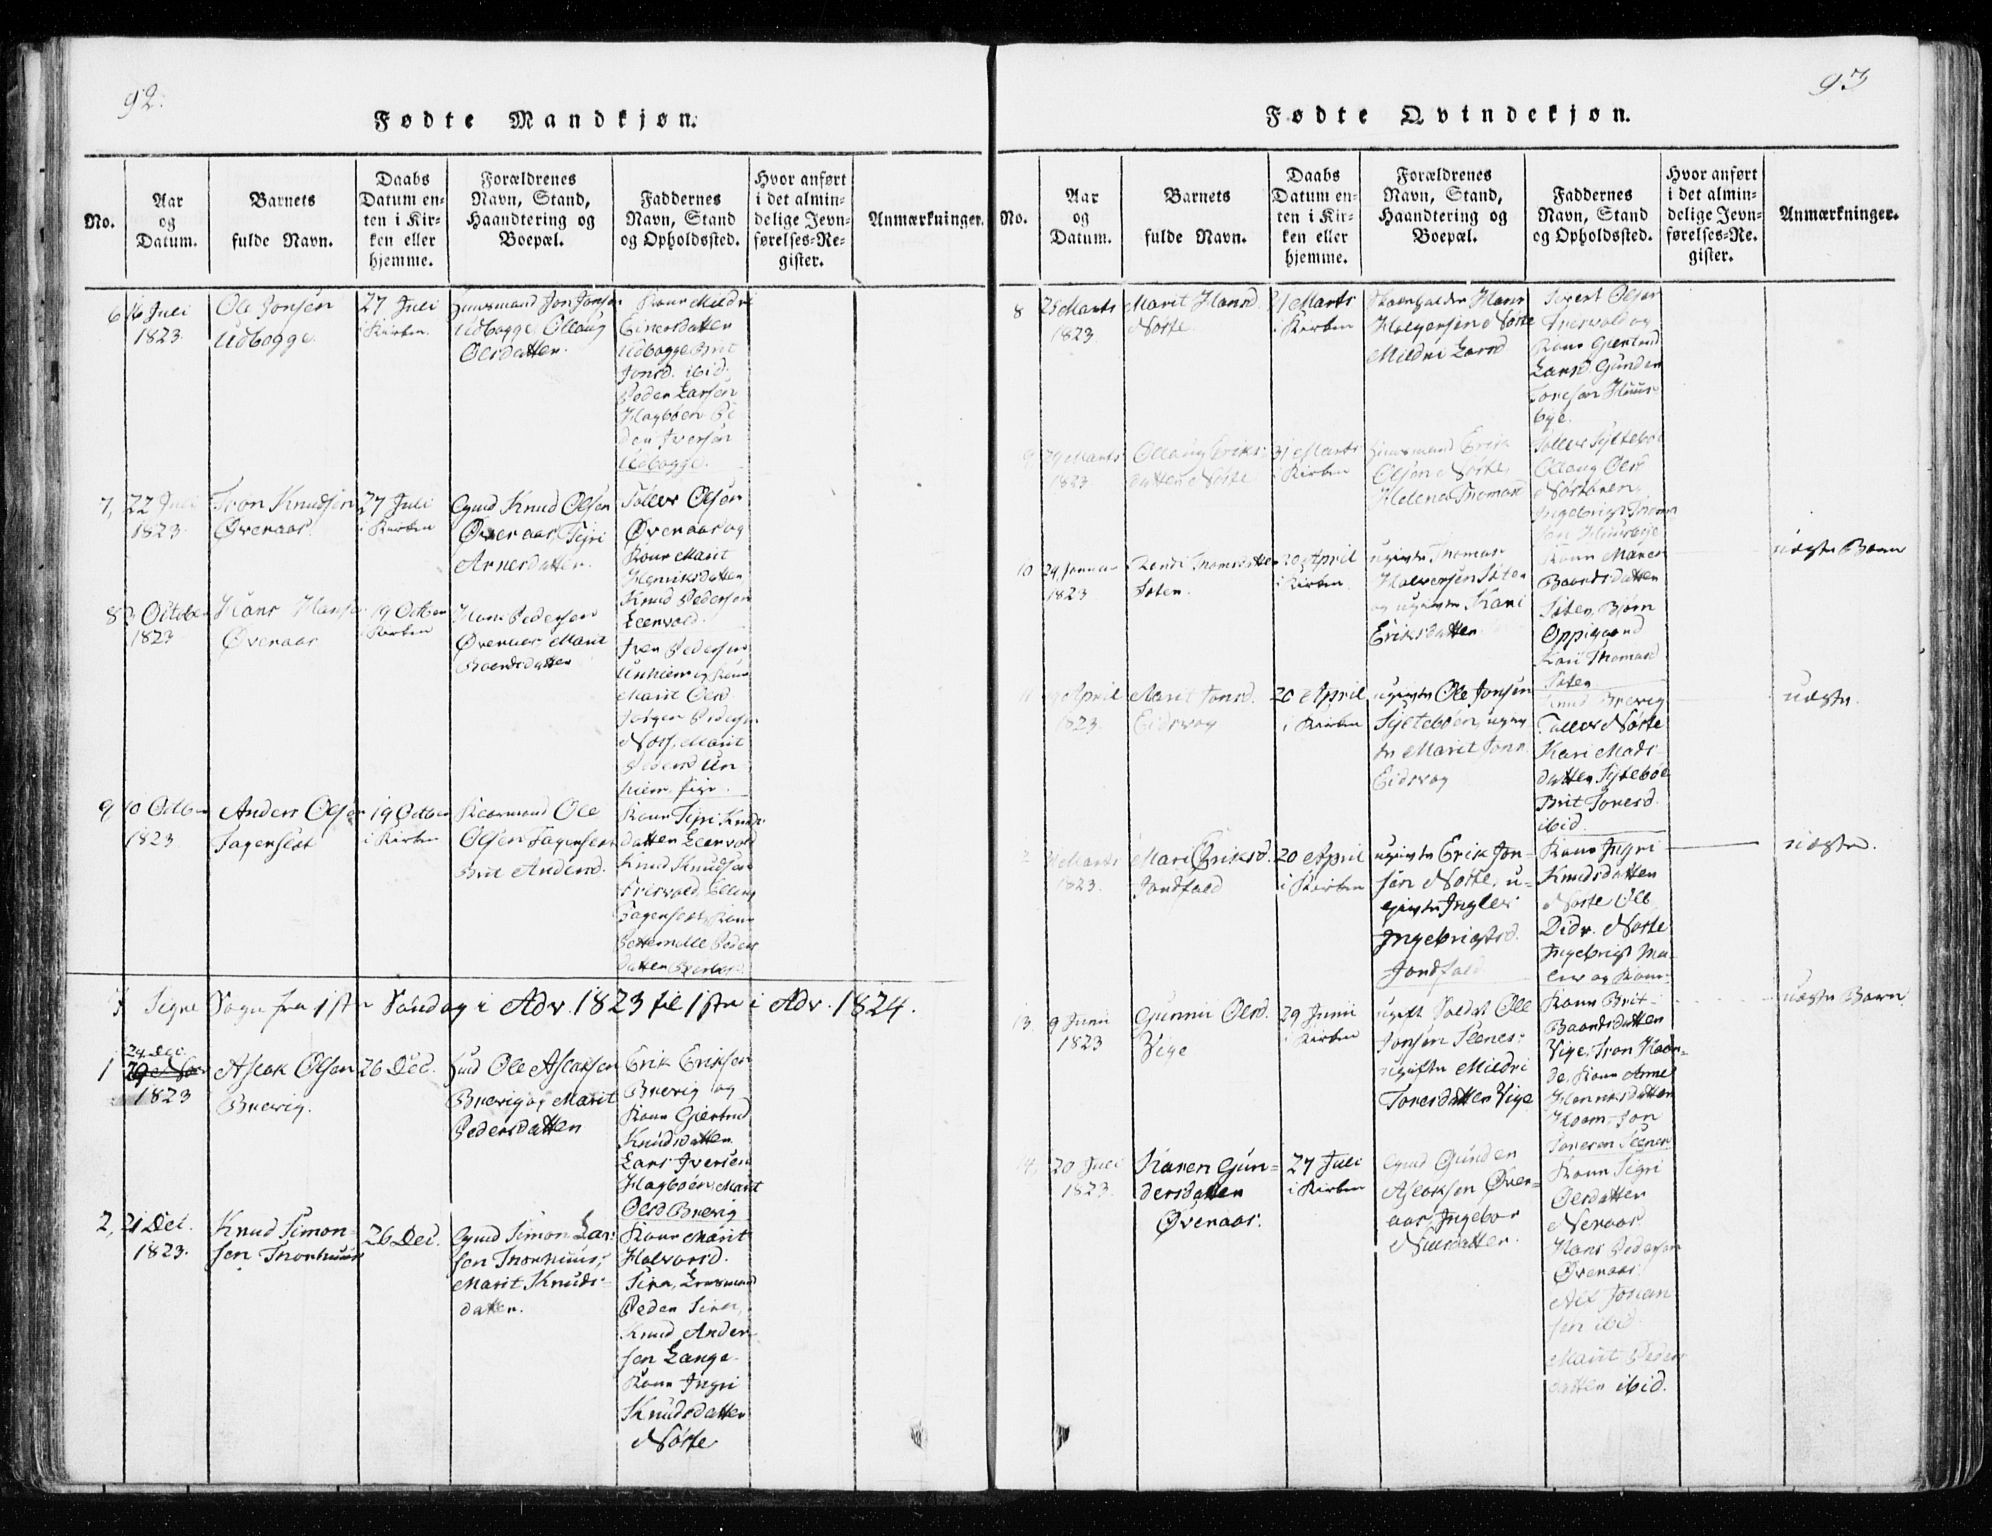 92.
Fødte Mandkjøn.
No.
Aar
og
Datum.
Barnets
fulde Navn.
Daabs
Datum en-
ten i Kir-
ken eller
hjemme.
Forældrenes
Navn, Stand,
Haandtering og
Boepæl.
Faddernes
Navn, Stand
og Opholdssted.
Hvor anført
i det almin-
delige Jevn-
førelses-Re-
gister.
Anmærkninger.
6
16 Juli
1823
Ole Jonsen
Udbogge.
27 Juli
i Kirken.
Huusmand Jon Jonsen
Udbogge, Ollaug
Olesdatter.
Kone Mildri
Einersdatter
Udbogge Brit
Jonsd. ibid.
Peder Larsen
Hagbøen Pe
der Iversen
Udbogge.
7,
22 Juli
1823.
Tron Knudsen
Øvenaas.
27 Juli
i Kirken
Gmd Knud Olsen
Øvenaas, Sigri
Arnesdatter.
Toller Olsen
Øvenaas og
Kone Marit
Henriksdatter
Knud Pedersen
Leervold.
8
3 October
1823
Hans Hansen
Øvenaas
19 October
Kirken
Hans Pedersen
Øvenaas Marit
Baardsdatter
Iver Pedersen
Unhiem og Kone
Marit Olsd.
Jørgen Pedersen
Marit
Pedersd Un
hiem pige.
9
10 Octber
1823
Anders Olsen
Fagerslet
19 October
i Kirken
Ole
Olsen Fagerslet
Brit Andersd.
Kone Sigri Knuds
datter Leervold
Knud Knudsen
Frisvold, Elling
Fagerslet, Kone
Petternelle Peders
datter
Tigre Sogn fra 1ste Søndag i Adv. 1823 til 1ste i Adv. 1824.
1
24 Dec.
1823
Aslak Olsen
Brevig.
26 Dec.
Ole Aslaksen
Brevig og Marit
Pedersdatter
Erik Eriksen
Brevig og
Kone Giertrud
Knudsdatter
Lars Iversen
Hagbøen, Marit
Olsd Brevig
2,
21 Dec.
1823.
Knud Simon-
sen Tronhuus
26 Dec.
Gmd Simon Lar-
sen Tronhuus;
Marit Knuds-
datter.
Kone Marit
Halvorsd.
Sira, Leensmand
Peder Sira,
Knud Ander
sen Lange
Kone Ingri
Knudsdatter
Nøste
93
Fødte Qvindekjøn.
No.
Aar
og
Datum.
Barnets
fulde Navn.
Daabs
Datum en-
ten i Kir-
ken eller
hjemme.
Forældrenes
Navn, Stand,
Haandtering og
Boepæl.
Faddernes
Navn, Stand
og Opholdssted.
Hvor anført
i det almin-
delige Jevn-
førelses-Re-
gister.
Anmærkninger.
8
25 Marts
1823.
Marit Hansd.
Nøste.
31 Marts
i Kirken
Hans
Holgersen Nøste
Mildri Larsd
Sivert Olsen
Frisvold og
Kone Giertrud
Larsd. Gunder
Toresen Huus-
bye.
9
29 Marts
1823.
Ollaug Eriks-
datter Nøste
31 Marts
i Kirken
Huusmand Erik
Olsen Nøste,
Helena Thomasd
Toller Syltebøe
Ollaug Olsd
Nøstøren,
Ingebrigt Simon
sen Huusbye
10
24 Januar
1823
Rendi Thomasdatter
Søter.
20 April
i Kirken
ugivte Thomas
Halvorsen Søter
og ugivte Kari
Eriksdatter
Kone Maren
Baardsdatter
Søter, Bjørn
Oppigaard
Kari Thomasd
Søter
uægte Barn
11
April
1823.
Marit Jonsd.
Eidsvog
20 April
i Kirken
ugivte Ole Jonsen
Syltebøen, ugiv
te Marit Jons.
Eidsvog
Knud Brevig
Toller Nøste
Kari Mads-
datter Syltebøe
Brit Toresd.
ibid.
uægte.
Marts
1823.
Mari Eriksd.
Jondfald
20 April
i Kirken
ugivte Erik Jon-
sen Nøste, u-
givte Ingler
Ingebrigtsd.
Jondfald
Kone Ingri
Knudsdatter
Nøste Ole
Didr. Nøste
Ingebrigt Ma-
ler og Kone
uægte.
13.
9 Junii
1823
Gunnie Olsd.
Vige
29 Junii
i Kirken
ugift Soldat Ole
Jonsen Steenes;
ugifte Mildri
Toresdatter Vige
Kone Brit
Baardsdatter
Vige, Tron Hoem-
de, Kone Anne
Henriksdatter
Hoem, Jon
Toresen Steenes
uægte Barn
14,
20 Juli
1823.
Karen Gun-
dersdatter
Øvenaas.
27 Juli
i Kirken
Gmd Gunder
Aslaksen Øven-
aas, Ingebor
Nilsdatter.
Kone Sigri
Olesdatter
Nenaas
Hans Pedersen
Øvenaas.
Nils Johan
sen ibid.
Marit Peders
datter ibid.